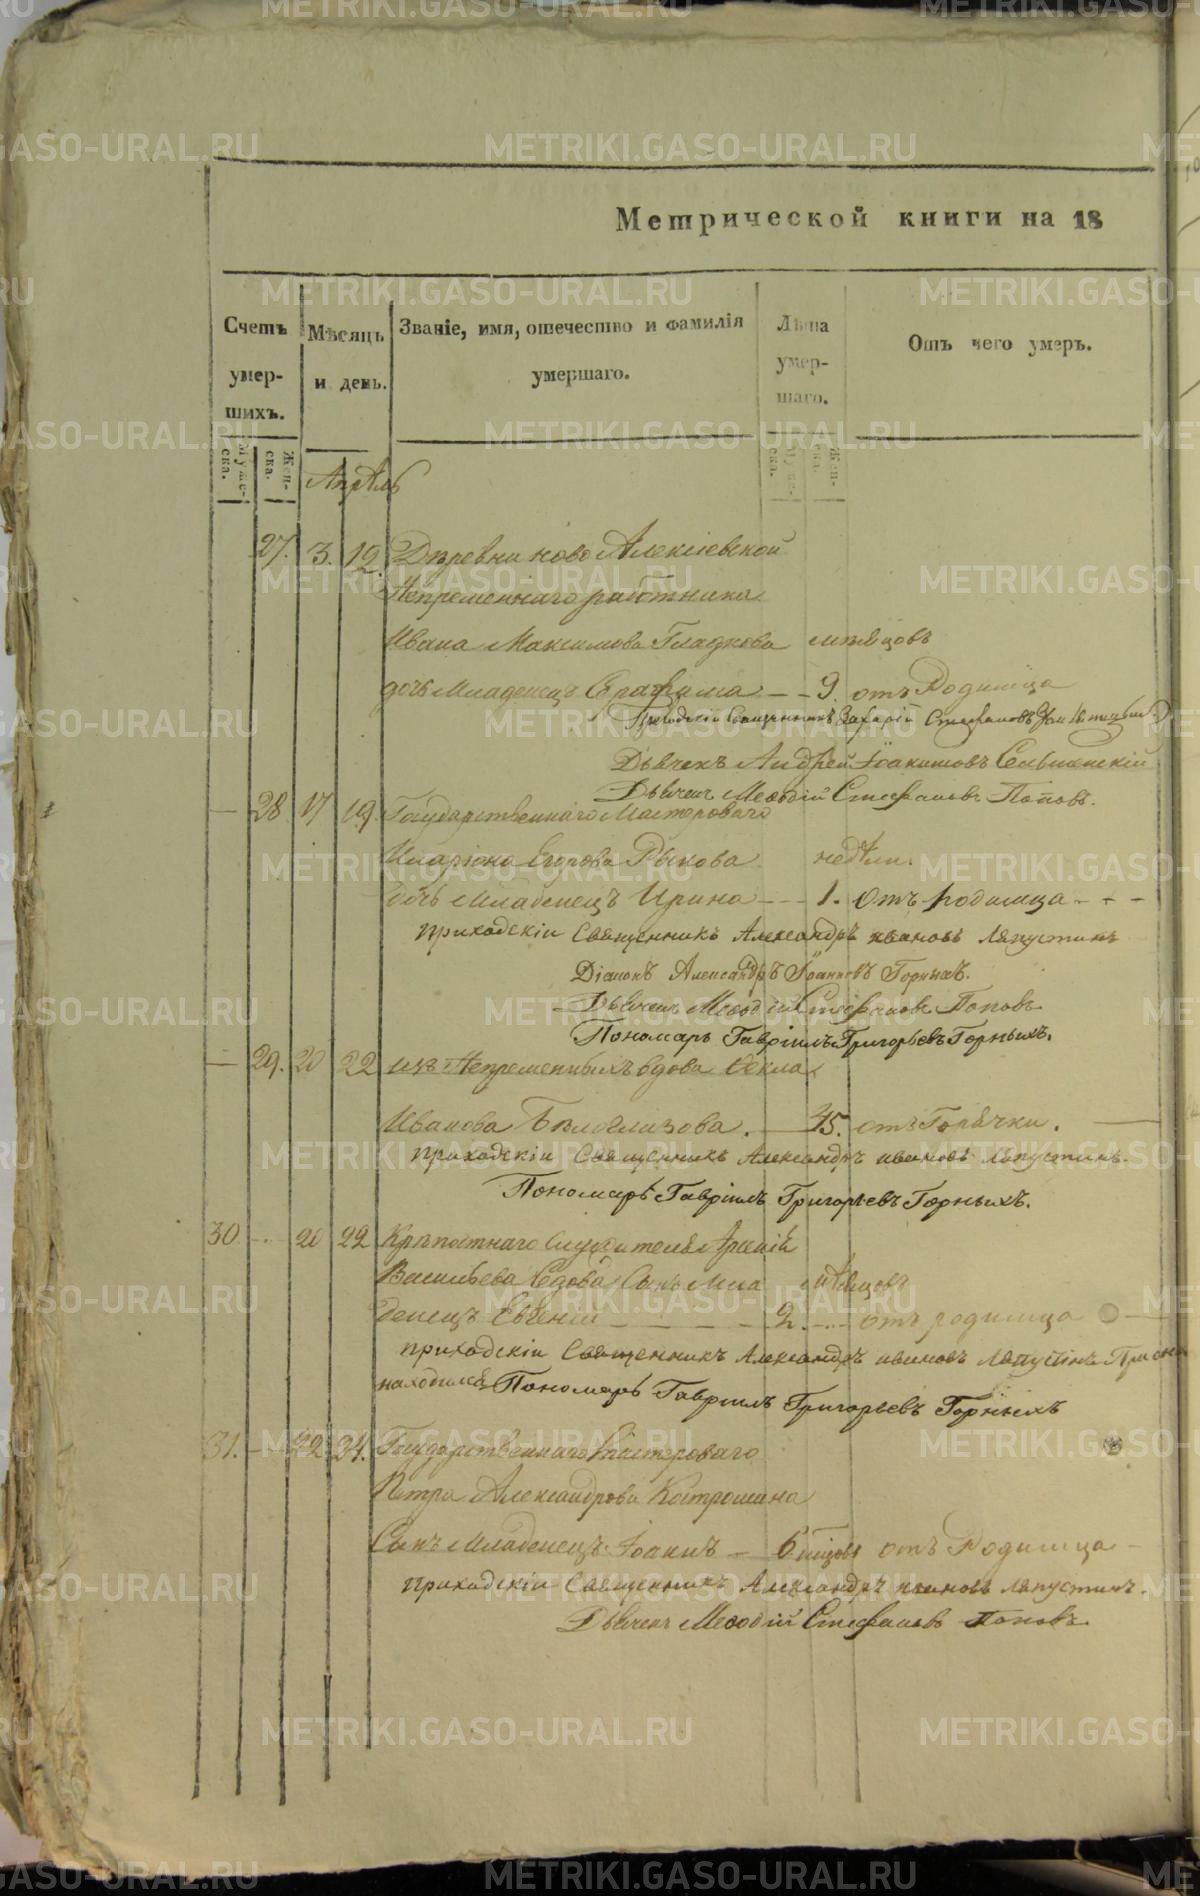 Метрической книги на 18
Счетъ умер-шихъ.
Муже-ска.
Жен-ска.
Мѣсяцъ и день.
Званіе, имя, отечество и фамилія умершаго.
Лѣта умер-шаго.
Муже-ска.
Жен-ска.
Отъ чего умеръ.
Апрѣль
27. 3. 12. Деревни ново Алексіевской
Непременнаго работника
Ивана Максимова Гладкова мѣсяцовъ
дочь младенецъ Серафима — 9. отъ Родимца
Приходскій Священникъ Захарій Стефановъ
Дьячекъ Андрей Іоакимовъ
Дьячекъ Меѳодій Стефановъ Поповъ.
— 28 17 19. Государственнаго Мастероваго
Иларіона Егорова Рыкова недѣли.
дочь младенецъ Ирина — 1. отъ родимца - - -
приходскіи Священникъ Александръ ивановъ Ляпустинъ
Діаконъ Александръ Іоанновъ Горныхъ.
Дьячекъ Меѳодій Стефановъ Поповъ
Пономарь Гавріилъ Григорьевъ Горныхъ.
— 29. 20 22 изъ Непременныхъ вдова Ѳекла
Иванова Бѣлоглазова. — 45. отъ Горячки.
приходскіи Священникъ Александръ ивановъ Ляпустинъ.
Пономарь Гавріилъ Григорьевъ Горныхъ.
30 - 20 22 Крѣпостнаго служителя
Васильева Седова Сынъ Мла мѣсяцовъ
денецъ Евгеній — 2. — отъ родимца —
приходскіи Священникъ Александръ ивановъ Ляпустинъ При сем
находился Пономарь Гавріилъ Григорьевъ Горныхъ
31. — 22 24. Государственнаго Мастероваго
Петра Александрова Костромина
Сынъ Младенецъ Іоаннъ — 6 мцовъ отъ Родимца -
приходскіи Священникъ Александръ ивановъ Ляпустинъ.
Дьячекъ Меѳодій Стефановъ Поповъ
METRIKI.GASO-URAL.RU